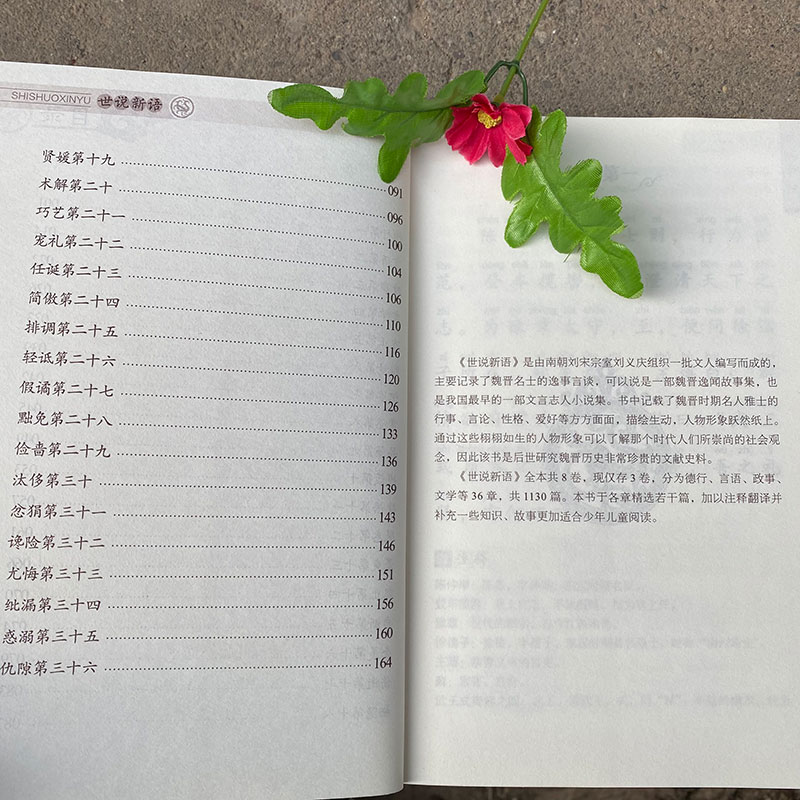 SHISHUOXINYU 世说新语
贤媛第十九 091
术解第二十 096
巧艺第二十一 100
宠礼第二十二 104
任诞第二十三 106
简傲第二十四 110
排调第二十五 116
轻诋第二十六 120
假谲第二十七 126
黜免第二十八 133
俭啬第二十九 136
汰侈第三十 139
忿狷第三十一 143
谗险第三十二 146
尤悔第三十三 151
纰漏第三十四 156
惑溺第三十五 160
仇隙第三十六 164
《世说新语》是由南朝刘宋宗室刘义庆组织一批文人编写而成的，
主要记录了魏晋名士的逸事言谈，可以说是一部魏晋逸闻故事集，也
是我国最早的一部文言志人小说集。书中记载了魏晋时期名人雅士的
行事、言论、性格、爱好等方方面面，描绘生动，人物形象跃然纸上。
通过这些栩栩如生的人物形象可以了解那个时代人们所崇尚的社会观
念，因此该书是后世研究魏晋历史非常珍贵的文献史料。
《世说新语》全本共 8 卷，现仅存 3 卷，分为德行、言语、政事、
文学等 36 章，共 1130 篇。本书于各章精选若干篇，加以注释翻译并
补充一些知识、故事更加适合少年儿童阅读。